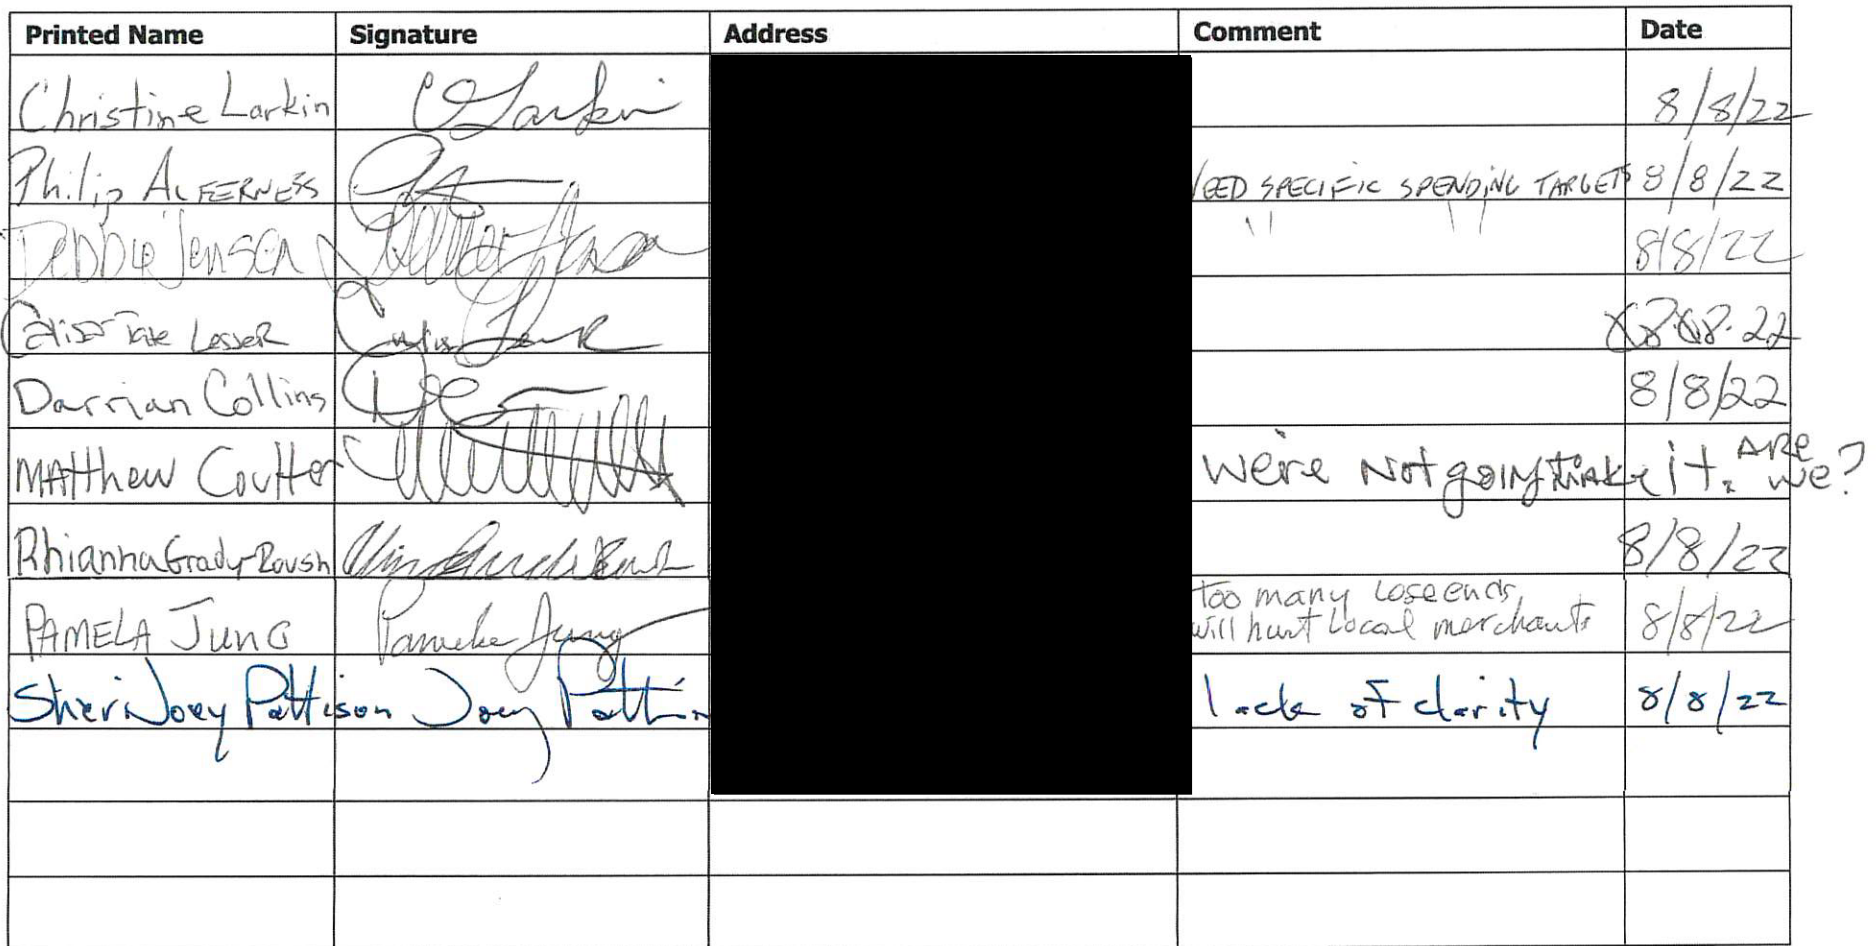 Printed Name Signature Address Comment Date
Christine Larkin C Larkin 8/8/22
Philip Alferness NEED SPECIFIC SPENDING TARGETS 8/8/22
Debbie Jensen " " 8/8/22
Tate Lesser 8.8.22
Darrian Collins 8/8/22
Matthew Coulter We're Not going make it. ARE we?
Rhianna Grady-Roush 8/8/22
PAMELA JUNG Pamela Jung too many lose ends, will hurt Local merchants 8/8/22
Sheri Joey Pattison Joey Pattison lack of clarity 8/8/22